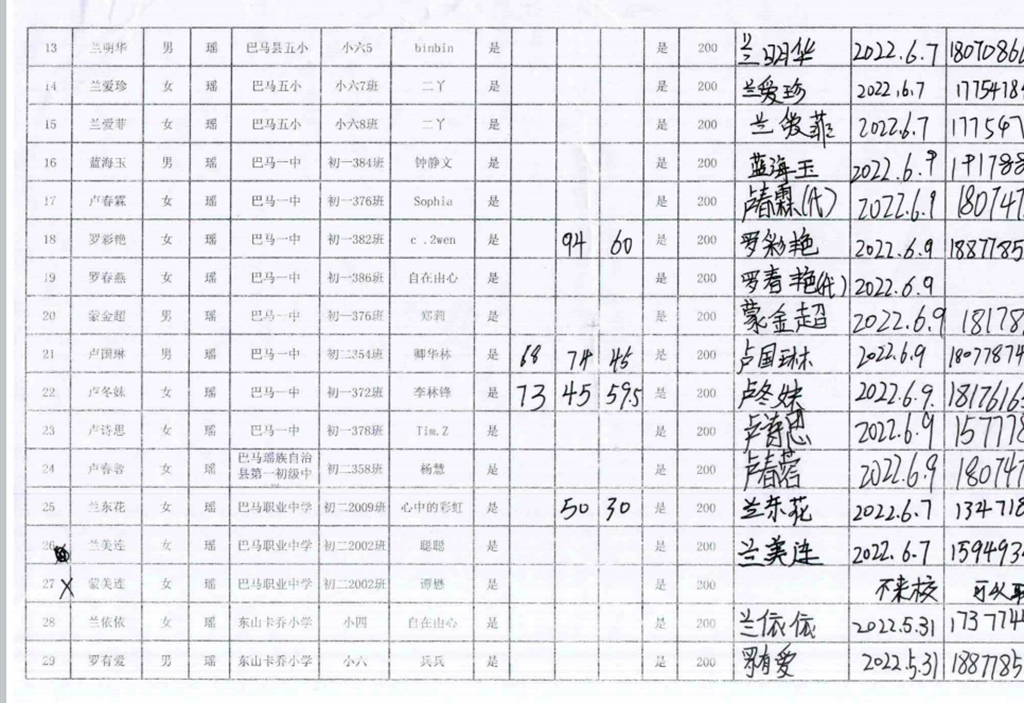 13 兰明华 男 瑶 巴马县五小 小六5 binbin 是 是 200 兰明华 2022.6.7 1807086
14 兰爱珍 女 瑶 巴马五小 小六7班 二丫 是 是 200 兰爱珍 2022.6.7 1775478
15 兰爱菲 女 瑶 巴马五小 小六8班 二丫 是 是 200 兰爱菲 2022.6.7 177547
16 蓝海玉 男 瑶 巴马一中 初一384班 钟静文 是 是 200 蓝海玉 2022.6.9 191788
17 卢春霖 女 瑶 巴马一中 初一376班 Sophia 是 是 200 卢春霖(代) 2022.6.9 180747
18 罗彩艳 女 瑶 巴马一中 初一382班 c .2wen 是 94 60 是 200 罗彩艳 2022.6.9 1887785
19 罗春燕 女 瑶 巴马一中 初一386班 自在由心 是 是 200 罗春艳(代) 2022.6.9
20 蒙金超 男 瑶 巴马一中 初一376班 郑莉 是 是 200 蒙金超 2022.6.9 18178
21 卢国琳 男 瑶 巴马一中 初二354班 卿华林 是 68 74 45 是 200 卢国琳 2022.6.9 18077874
22 卢冬妹 女 瑶 巴马一中 初一372班 李林锋 是 73 45 59.5 是 200 卢冬妹 2022.6.9. 1817616
23 卢诗思 女 瑶 巴马一中 初一378班 Tim.Z 是 是 200 卢诗思 2022.6.9 157778
24 卢春蓉 女 瑶 巴马瑶族自治县第一初级中 初二358班 杨慧 是 是 200 卢春蓉 2022.6.9 180747
25 兰东花 女 瑶 巴马职业中学 初二2009班 心中的彩虹 是 50 30 是 200 兰东花 2022.6.7 134718
26 兰美连 女 瑶 巴马职业中学 初二2002班 聪聪 是 是 200 兰美连 2022.6.7 159493
27 X 蒙美连 女 瑶 巴马职业中学 初二2002班 谭懋 是 是 200 不来校 可以
28 兰依依 女 瑶 东山卡乔小学 小四 自在由心 是 是 200 兰依依 2022.5.31 1737744
29 罗有爱 男 瑶 东山卡乔小学 小六 兵兵 是 是 200 罗有爱 2022.5.31 1887785